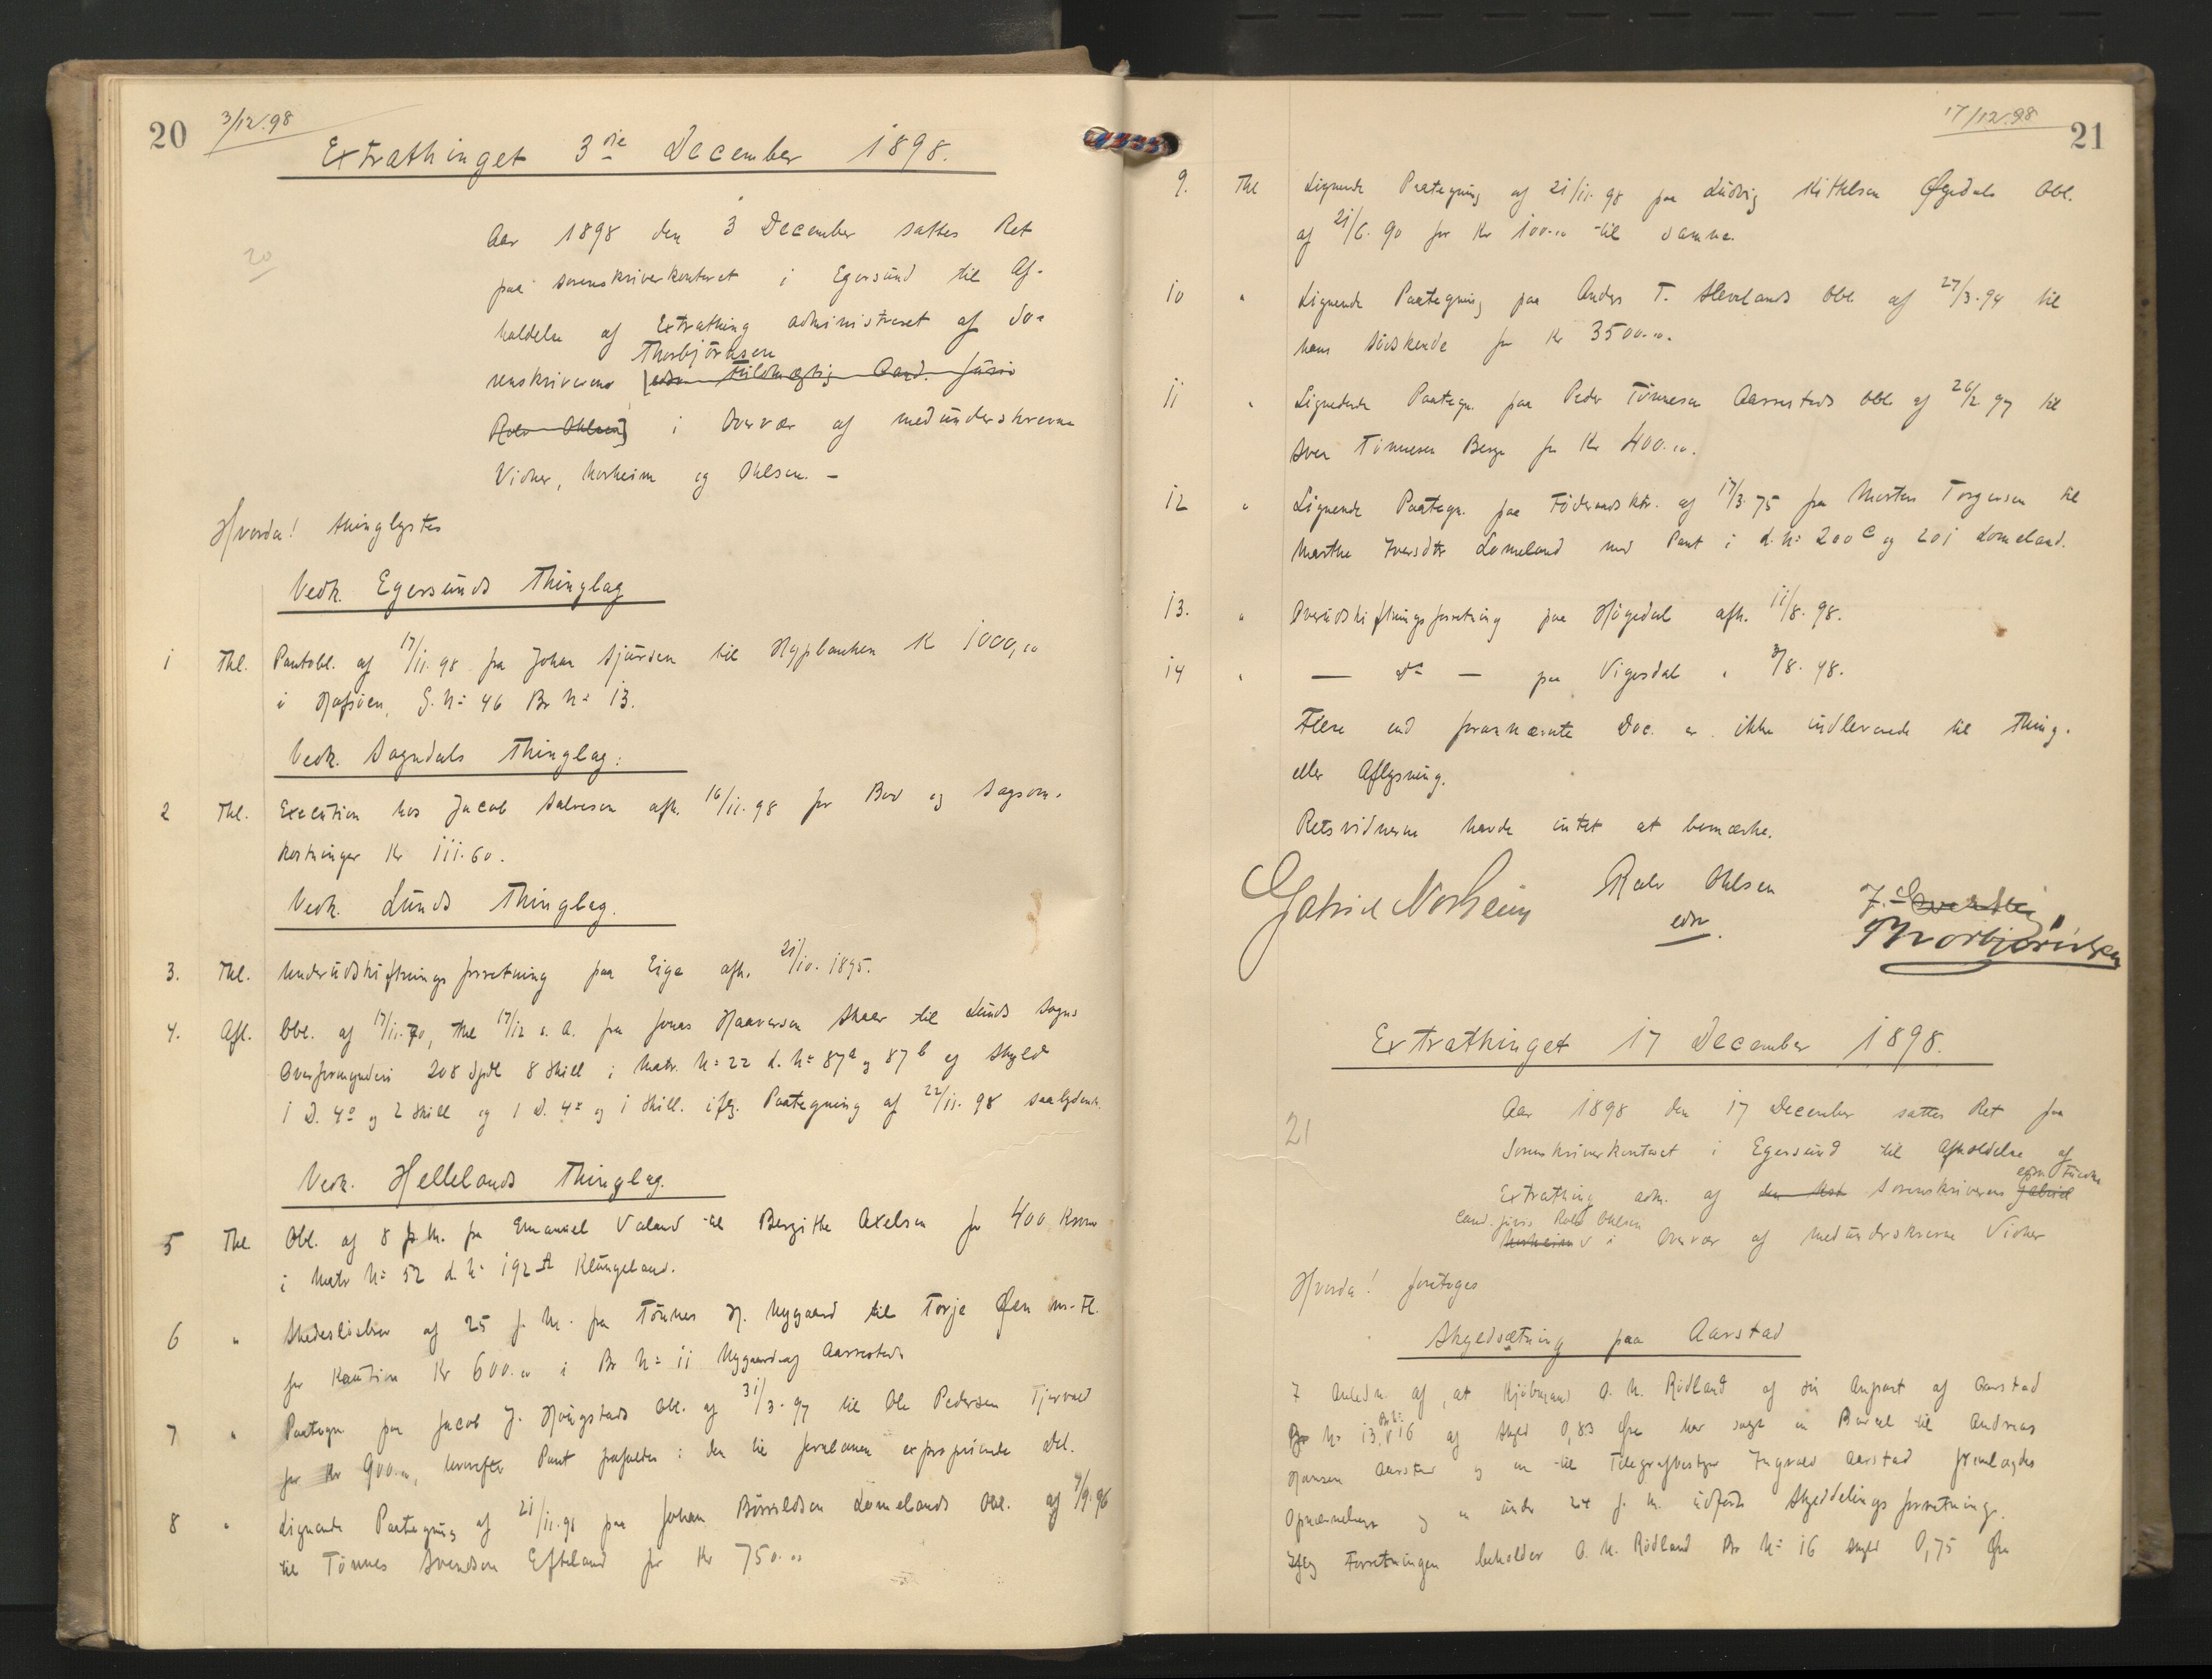 20
3/12.98
Extrathinget 3die December 1898.
20
Aar 1898 den 3 December sattes Ret
paa Sorenskriverkontoret i Egersund til Af-
holdelse af Extrathing administreret af So-
Thorbjörnsen
renskriveren [edsv. Fuldmægtig Cand. juris
Rolv Ohlsen] i Overvær af medunderskrevne
Vidner, Norheim og Ohlsen. -
Hvorda! thinglystes
Vedk. Egersunds Thinglag
1 Thl. Pantobl. af 17/11.98 fra Johan Sjursen til Hypbanken Kr 1000,00
i Hafsöen, G. No 46 Br No 13.
Vedk. Sogndals Thinglag:
2 Thl. Execution hos Jacob Salvesen afh. 16/11.98 for Bod og Sagsom-
kostninger Kr 111.60.
Vedk. Lunds Thinglag.
3. Thl. Underudskiftningsforretning paa Eige afh. 21/10. 1895.
4. Afl. Obl. af 17/11.70, thl 17/12 s. A. fra Jonas Haaversen Skaar til Lunds Sogns
Overformynderi 208 Spdl 8 Skill i Matr. No 22 L. No 87a og 87b af Skyld
1 D. 4o og 2 Skill og 1 D. 4o og 1 Skill. iflg. Paategning af 22/11. 98 saalydende.
Vedk. Hellelands Thinglag.
5 Thl Obl. af 8 f. M. fra Emanuel Valand til Bergithe Axelsen for 400 Kroner
i Matr No 52 L. No 192A Klungeland.
6 " Skadeslösbrev af 25 f. M. fra Tönnes H. Nygaard til Torje Öen m. Fl.
for Kaution Kr 600.00 i Br No 11 Nygaard af Aarrestad.
7 " Paategn paa Jacob J. Haugstads Obl. af 31/3.97 til Ole Pedersen Tjorved
for Kr 900.00, hvorefter Pant frafaldes i den til Jernbanen exproprierede Del.
8 " Lignende Paategning af 21/11.98 paa Johan Börildsen Lomelands Obl. af 7/9.96
til Tönnes Svendsen Efteland for Kr 750.00
17/12.98
21
9. Thl Lignende Paategning af 21/11.98 paa Ludvig Kittelsen Øgedals Obl.
af 21/6.90 for Kr 100.00 til samme.
10 " Lignende Paategning paa Anders T. Slevelands Obl. af 27/3.94 til
hans Södskende for Kr 3500.00.
11 " Lignende Paategn. paa Peder Tönnesen Aarrestads Obl. af 26/2 97 til
Sven Tönnesen Berge for Kr 400.00.
12 " Lignende Paategn. paa Föderaadsktr. af 17/3.75 fra Morten Torgersen til
Marthe Iversdtr Lomeland med Pant i L. No 200c og 201 Lomeland.
13. " Overudskiftningsforretning paa Högedal afh. 11/8.98.
14 " — do — paa Vigesdal " 3/8.98.
Flere end forannævnte Doc. er ikke indleverede til Thing-
eller Aflysning.
Retsvidnerne havde intet at bemærke.
Gabriel Norheim Rolv Ohlsen
edsv.
Thorbjörnsen
Extrathinget 17 December 1898.
21
Aar 1898 den 17 December sattes Ret paa
Sorenskriverkontoret i Egersund til Afholdelse af
Extrathing adm. af den Kst. Sorenskriverens Gabriel
Cand. juris Rolv Ohlsen
Norheim i Overvær af medunderskrevne Vidner
Hvorda! foretoges
Skyldsætning paa Aarstad
I Anledn. af, at Kjöbmand O. N. Rödland af sin Anpart af Aarstad
Br No 13, Br No 16 af Skyld 0,83 Öre har solgt en Parcel til Andreas
Hansen Aarstad og en til Telegrafbestyrer Ingvald Aarstad fremlagdes
Opnævnelsen og en under 24 f. M. udført Skyddelingsforretning.
Iflg Forretningen beholder O. N. Rödland Br No 16 Skyld 0,75 Øre